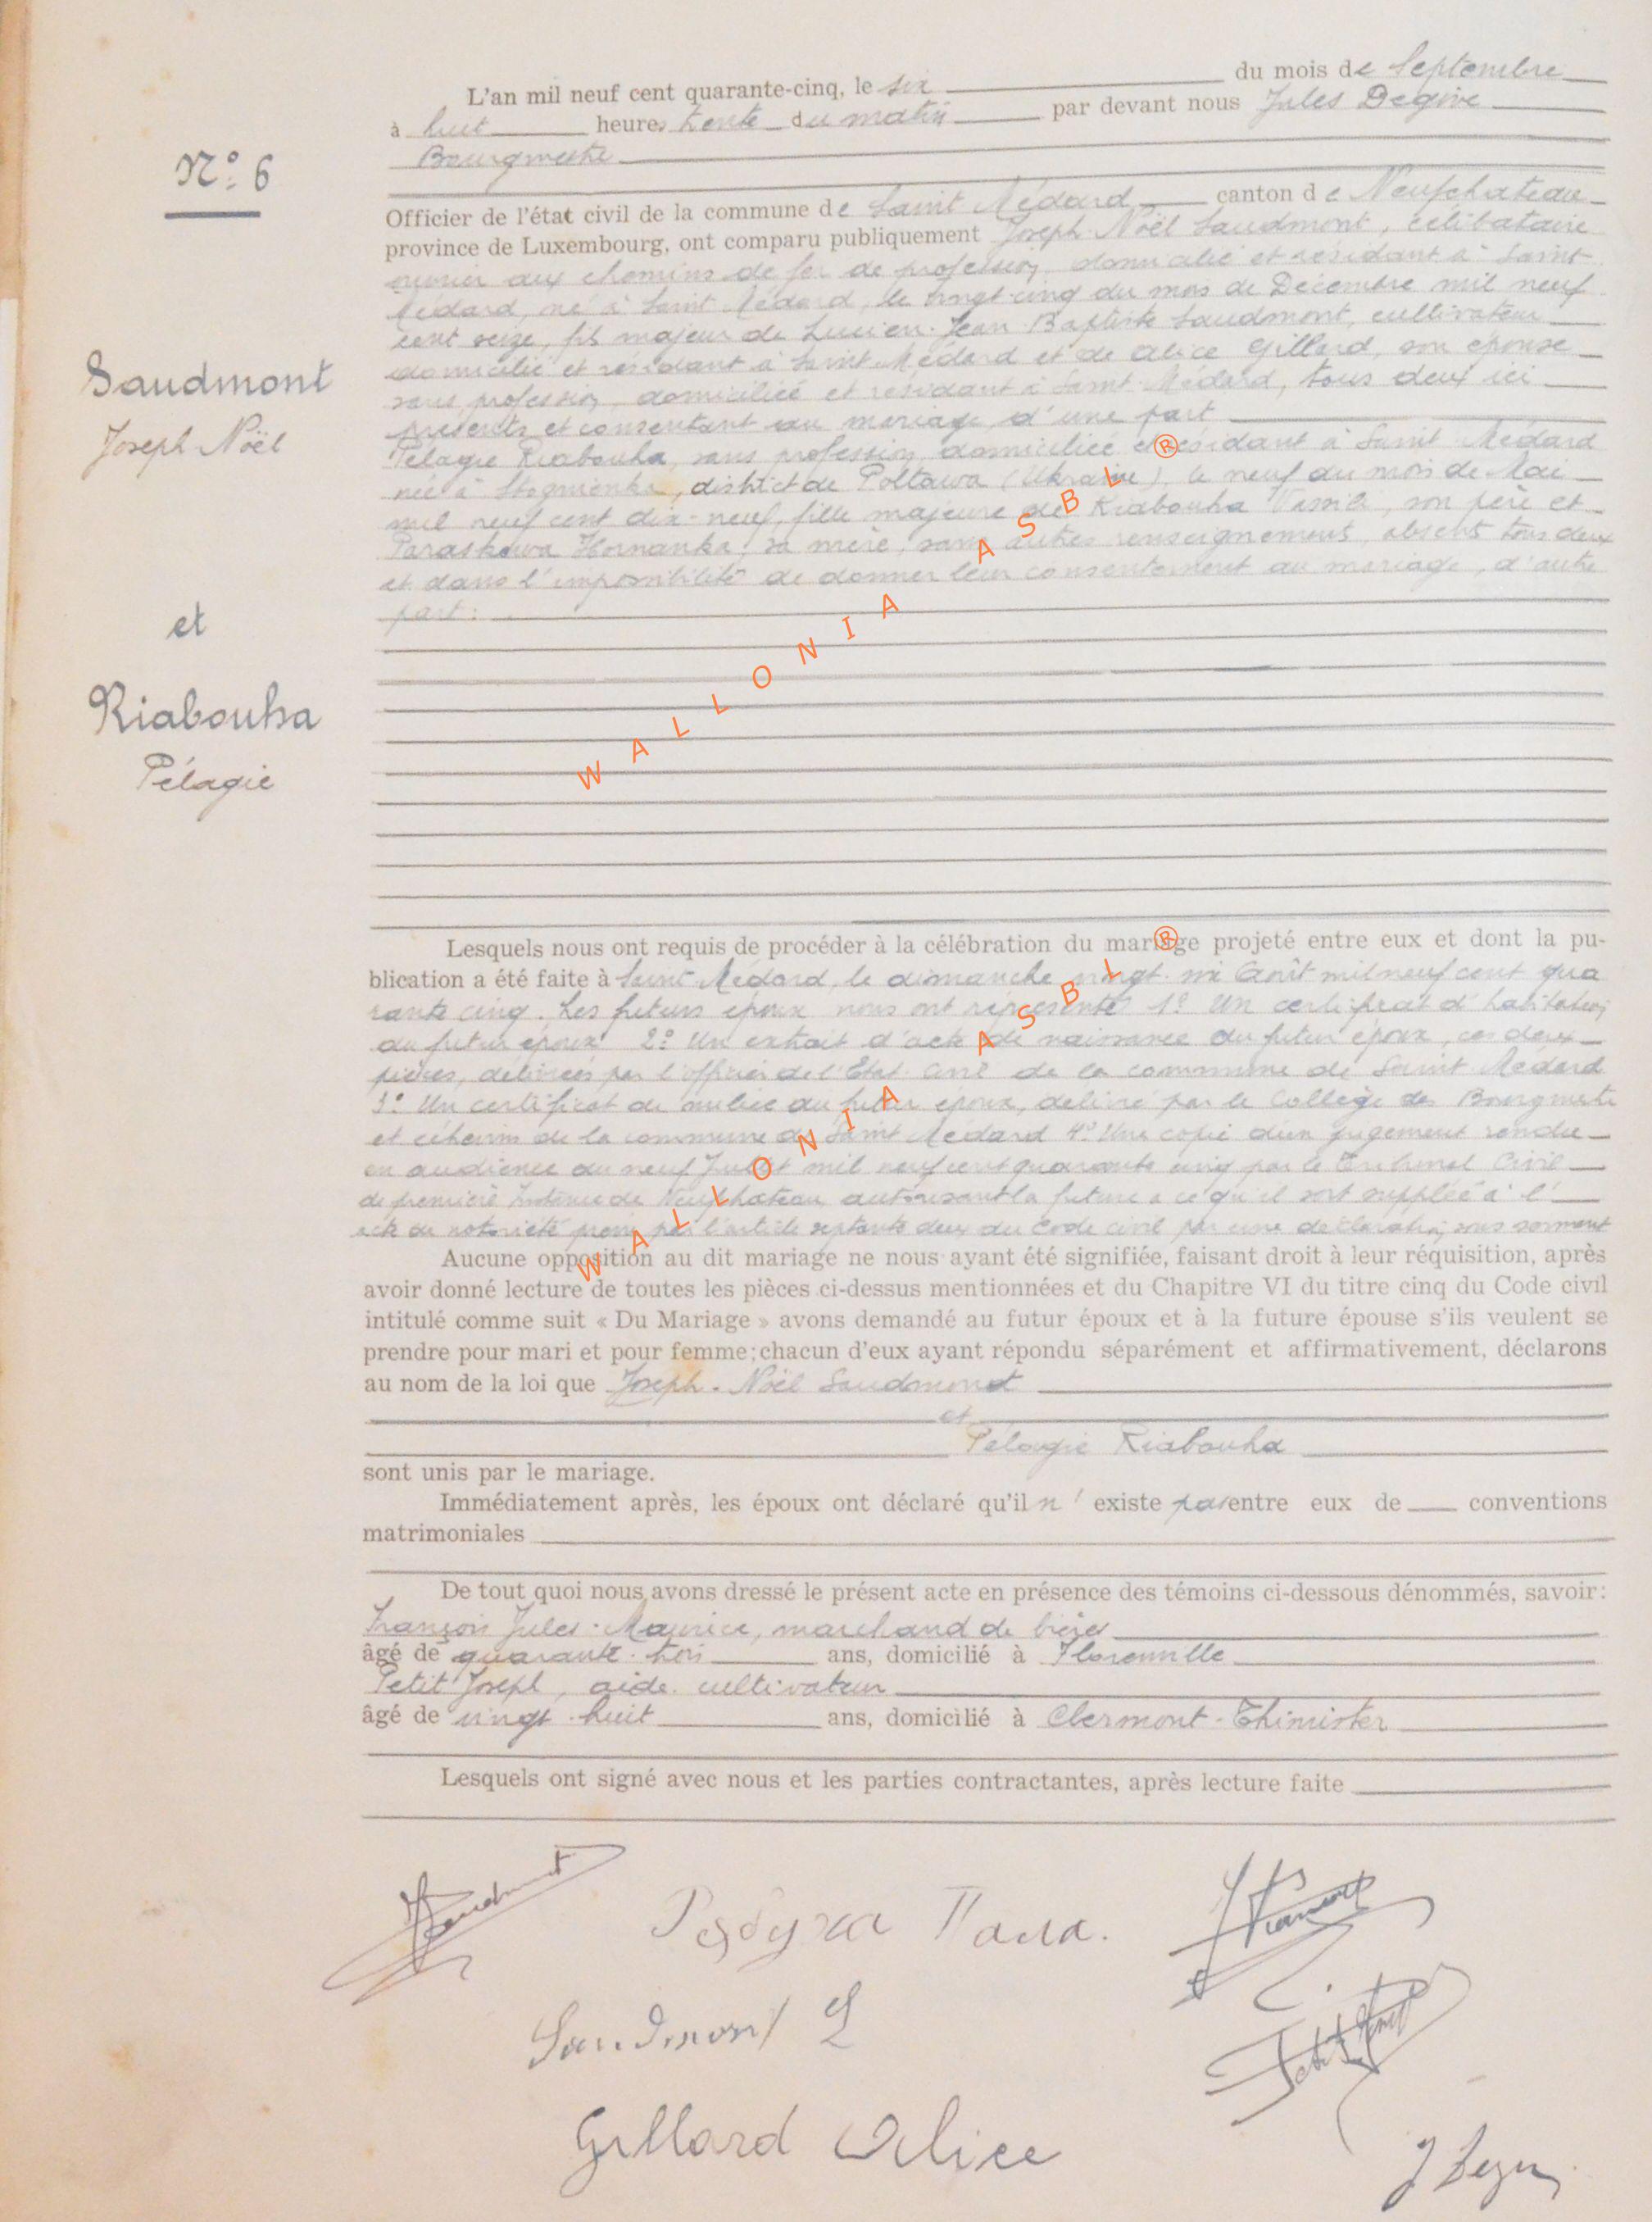 N° 6
Saudmont
Joseph Noël
et
Riabouha
Pélagie
L'an mil neuf cent quarante-cinq, le six du mois de Septembre
à huit heures trente du matin par devant nous Jules Degive
Bourgmestre
Officier de l'état civil de la commune de Saint Médard canton de Neufchateau
province de Luxembourg, ont comparu publiquement Joseph Noël Saudmont, célibataire
ouvrier aux chemins de fer de profession, domicilié et résidant à Saint
Médard, né à Saint Médard, le vingt-cinq du mois de Décembre mil neuf
cent seize, fils majeur de Lucien-Jean Baptiste Saudmont, cultivateur
domicilié et résidant à Saint Médard et de Alice Gillard, son épouse
sans profession, domiciliée et résidant à Saint-Médard, tous deux ici
présents et consentant au mariage, d'une part
Pélagie Riabouha, sans profession, domiciliée et résidant à Saint Médard
née à district de Poltawa (Ukraine), le neuf du mois de Mai
mil neuf cent dix-neuf, fille majeure de Riabouha Vassili, son père et
Paraskewa Hornanka, sa mère, sans autres renseignements, absents tous deux
et dans l'impossibilité de donner leur consentement au mariage, d'autre
part.
Lesquels nous ont requis de procéder à la célébration du mariage projeté entre eux et dont la pu-
blication a été faite à Saint-Médard, le dimanche vingt-six Août mil neuf cent qua
rante cinq. Les futurs époux nous ont représenté 1° Un certificat d'habitation
du futur époux 2° Un extrait d'acte de naissance du futur époux, ces deux
pièces, délivrées par l'officier de l'Etat Civil de la commune de Saint Médard
3° Un certificat de milice du futur époux, délivré par le Collège des Bourgmestre
et échevins de la commune de Saint Médard 4° Une copie d'un jugement rendu
en audience du neuf Juillet mil neuf cent quarante cinq par le Tribunal Civil
de première Instance de Neufchateau autorisant la future à ce qu'il soit suppléé à l'
acte de notoriété prévu par l'article septante deux du Code civil par une déclaration sous serment
Aucune opposition au dit mariage ne nous ayant été signifiée, faisant droit à leur réquisition, après
avoir donné lecture de toutes les pièces ci-dessus mentionnées et du Chapitre VI du titre cinq du Code civil
intitulé comme suit « Du Mariage » avons demandé au futur époux et à la future épouse s'ils veulent se
prendre pour mari et pour femme; chacun d'eux ayant répondu séparément et affirmativement, déclarons
au nom de la loi que Joseph-Noël Saudmont
et
Pélagie Riabouha
sont unis par le mariage.
Immédiatement après, les époux ont déclaré qu'il n'existe pas entre eux de conventions
matrimoniales
De tout quoi nous avons dressé le présent acte en présence des témoins ci-dessous dénommés, savoir:
François Jules-Maurice, marchand de bières
âgé de quarante-trois ans, domicilié à Florenville
Petit Joseph, aide cultivateur
âgé de vingt-huit ans, domicilié à Clermont-Thimister
Lesquels ont signé avec nous et les parties contractantes, après lecture faite
Saudmont
Saudmont L
Gillard Alice
WALLONIA ASBL ®
WALLONIA ASBL ®